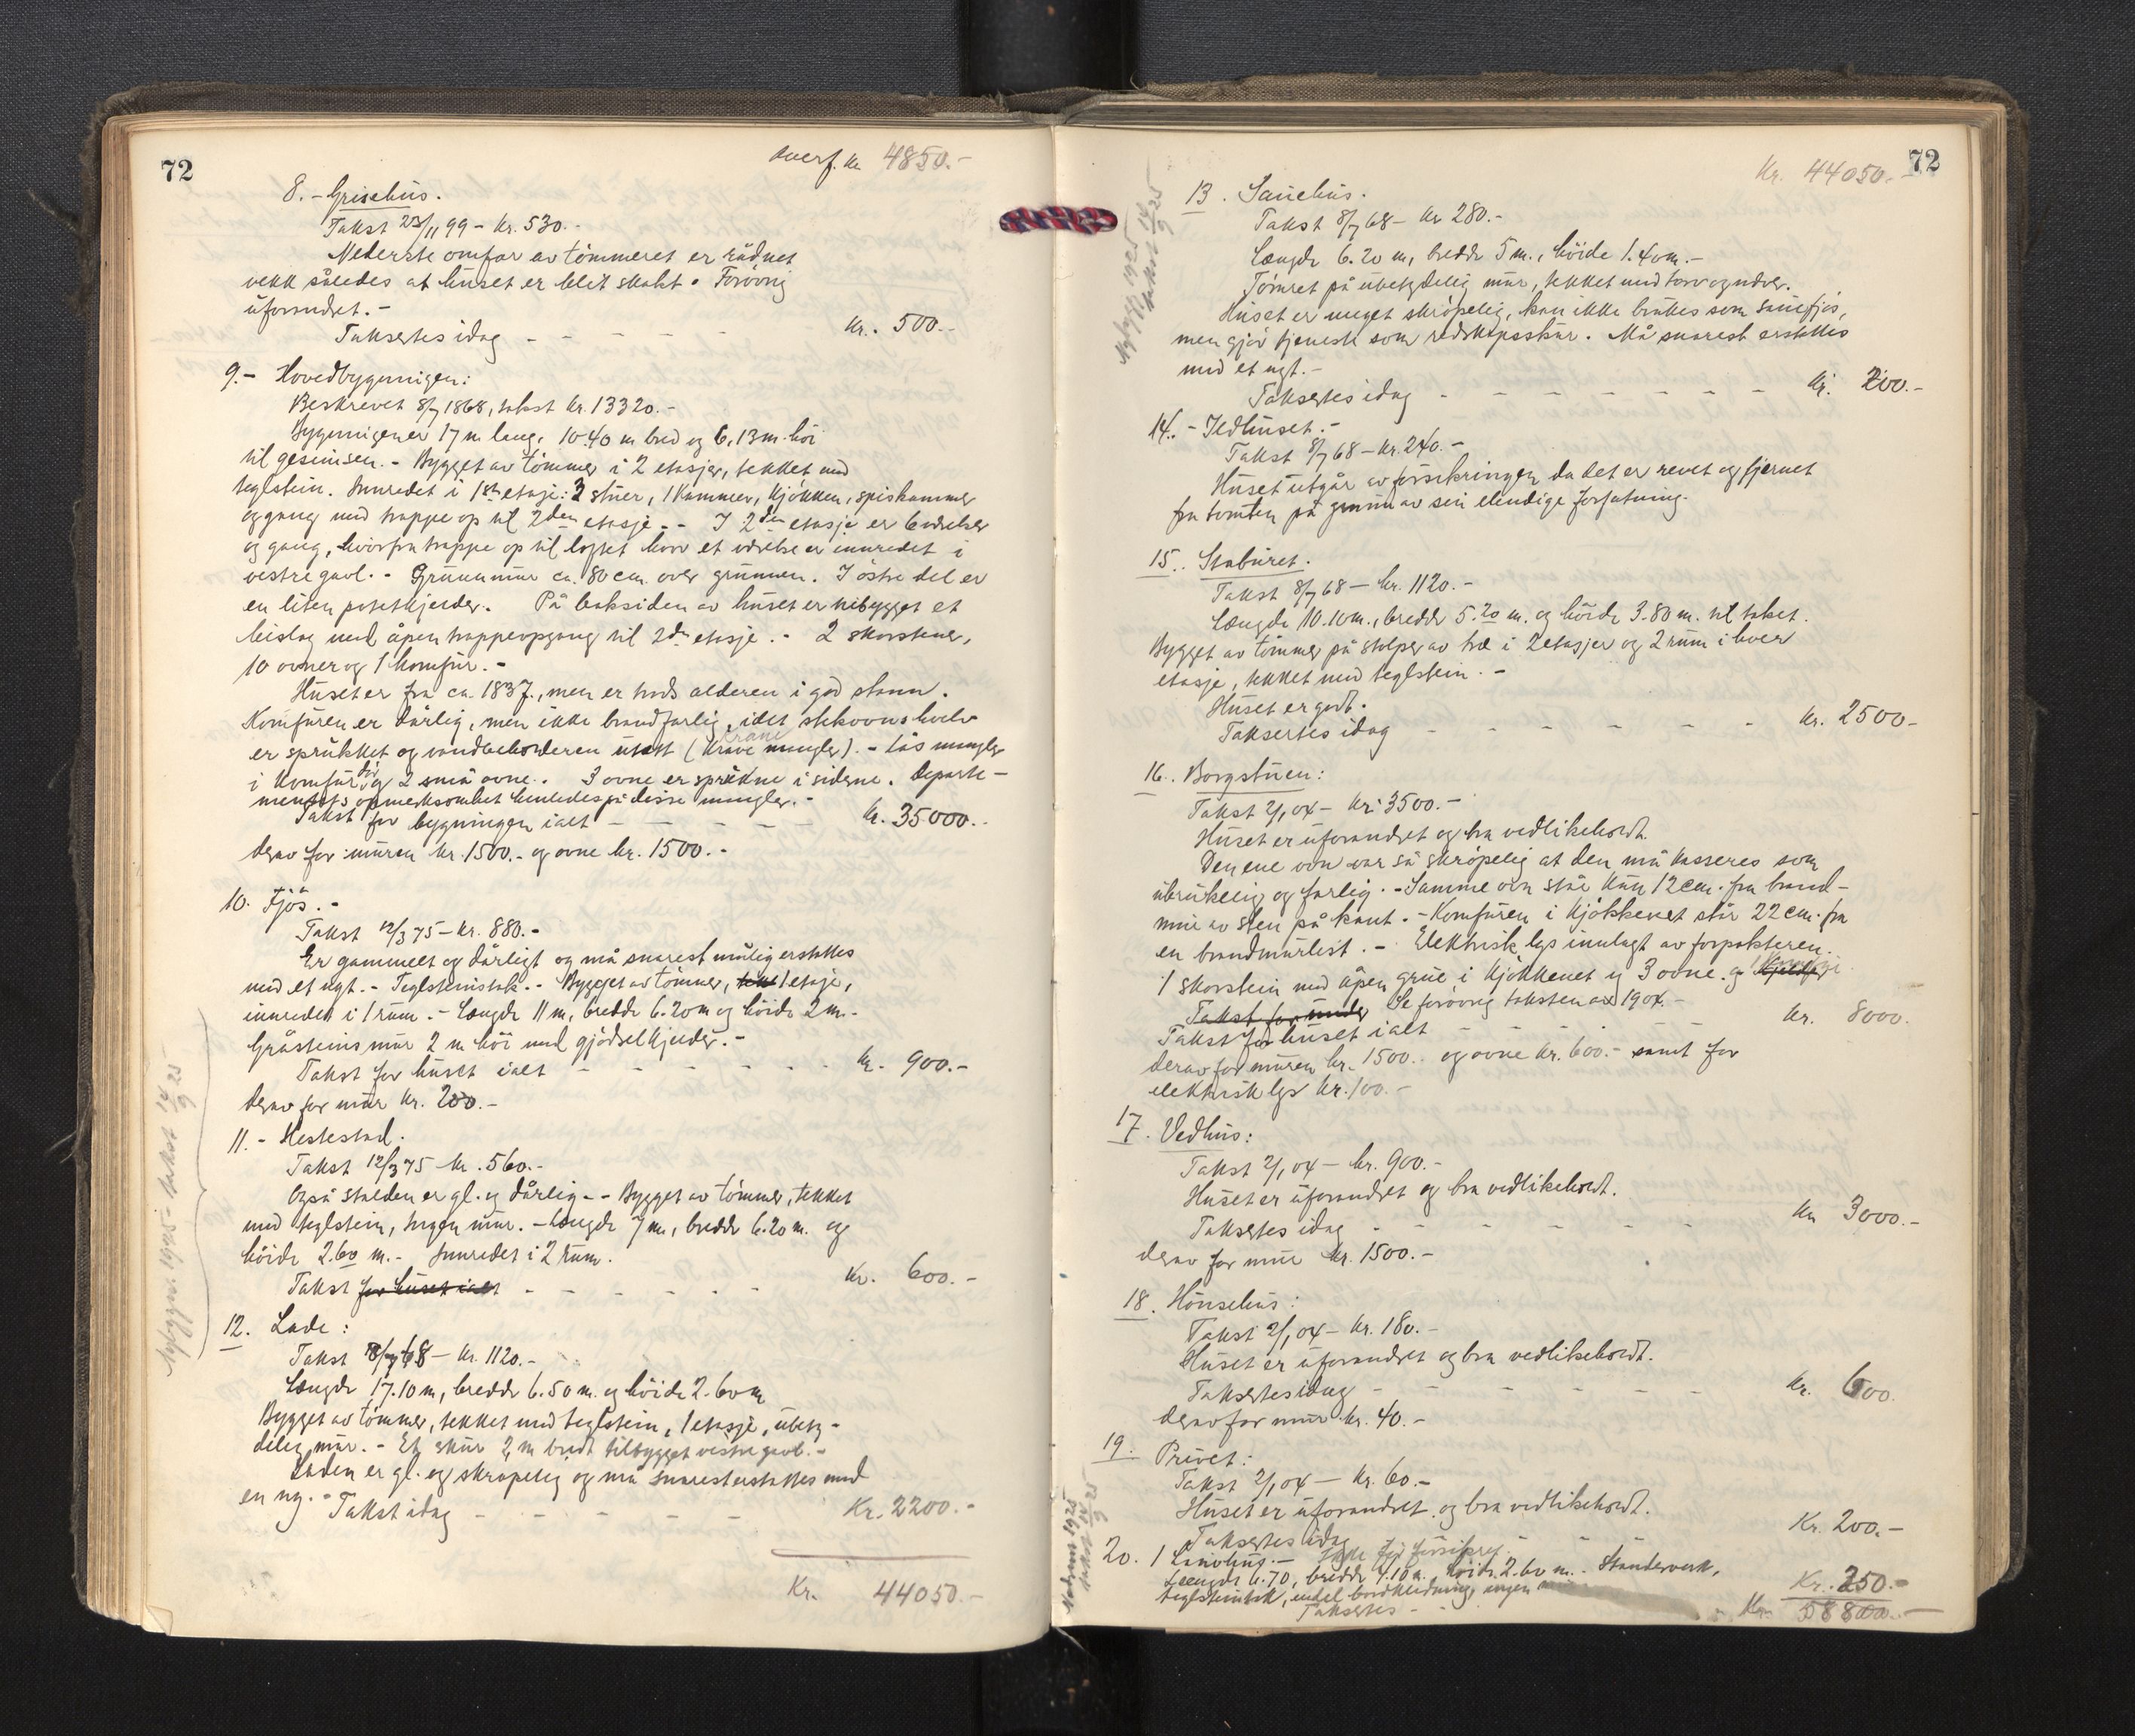 72
Overf. Kr. 4850.-
8.- Grisehus.
Takst 23/11 99 - Kr. 530.-
Nederste omfar av tømmeret er rådnet
vekk således at huset er blit skakt. Forøvrig
uforandret. -
Taksertes idag - - - - - Kr. 500.-
9.- Hovedbygningen:
Beskrevet 8/7 1868, takst Kr. 13320.-
Bygningen er 17 m lang, 10.40 m bred og 6,13 m. høi
til gesimsen. - Bygget av tømmer i 2 etasjer, tekket med
teglstein. Innredet i 1ste etasje: 3 stuer, 1 Kammer, Kjøkken, spiskammer
og gang med trappe op til 2den etasje. - I 2den etasje er 6 værelser
og gang, hvorfra trappe op til loftet hvor et værelse er innredet i
vestre gavl. - Grunnmur ca. 80 cm. over grunnen. I østre del er
en liten potetkjelder. På baksiden av huset er tilbygget et
bislag med åpen trappeopgang til 2den etasje. - 2 skorstener,
10 ovner og 1 komfur. -
Huset er fra ca. 1837, men er trods alderen i god stann.
Komfuren er dårlig, men ikke brandfarlig, idet stekovnshvelv
er sprukket og vandbeholderen utett (Krane mangler). - Lås mangler
i komfurdør og 2 små ovne. 3 ovne er sprukne i siderne. Departe-
mentets opmerksomhet henledes på disse mangler. -
Takst for bygningen ialt - - - - Kr. 35000.-
derav for muren kr. 1500.- og ovne kr. 1500.-
10. Fjøs. -
Takst 12/3 75 - Kr. 880.-
Er gammelt og dårligt og må snarest mulig erstattes
med et nyt. - Teglsteinstak. - Bygget av tømmer, 1 etasje,
innredet i 1 rum. - Længde 11 m, bredde 6.20 m og høide 2 m.-
Gråsteinsmur 2 m høi med gjødselkjelder. -
Takst for huset ialt - - - - - Kr. 900.-
derav for mur Kr. 200.-
11. - Hestestal.
Takst 12/3 75 Kr. 560.-
Også stalden er gl. og dårlig. - Bygget av tømmer, tekket
med teglstein, ingen mur. - Længde 7 m, bredde 6.20 m. og
høide 2.60 m. - Innredet i 2 rum.
Takst for huset ialt - - - - - - Kr. 600.-
12. Lade:
Takst 8/7 68 - Kr. 1120.-
Længde 17.10 m, bredde 6.50 m. og høide 2.60 m
Bygget av tømmer, tekket med teglstein, 1 etasje, ubety-
delig mur. - Et skur 2 m bredt tilbygget vestre gavl. -
Laden er gl. og skrøpelig og må snarest erstattes med
en ny. - Takst idag - - - - - - Kr. 2200.-
Kr. 44050.-
Nybygget 1925 - takst 14/9 25
72
Kr. 44050.-
13. Sauehus.
Takst 8/7 68 - Kr 280.-
Længde 6.20 m, bredde 5 m., høide 1.40 m. -
Tømret på ubetydelig mur, tekket med torv og never.
Huset er meget skrøpelig, kan ikke brukes som sauefjøs,
men gjør tjeneste som redskapsskur. Må snarest erstattes
med et nyt. -
Taksertes idag - - - - - - - Kr. 200.-
14. - Ildhuset. -
Takst 8/7 68 - Kr. 240.-
Huset utgår av forsikringen da det er revet og fjernet
fra tomten på grunn av sin elendige forfatning.
15. Staburet.
Takst 8/7 68 - kr. 1120.-
Længde 10.10 m., bredde 5.20 m. og høide 3.80 m. til taket.
Bygget av tømmer på stolper av træ i 2 etasjer og 2 rum i hver
etasje, tekket med teglstein. -
Huset er godt.
Taksertes idag - - - - - - - Kr. 2500-
16. Borgstuen:
Takst 2/1 04 - Kr. 3500.-
Huset er uforandret og bra vedlikeholdt.
Den ene ovn var så skrøpelig at den må kasseres som
ubrukelig og farlig. - Samme ovn står kun 12 cm. fra brand-
mur av sten på kant. - Komfuren i Kjøkkenet står 22 cm. fra
en brandmurlist. - Elektrisk lys innlagt av forpakteren.
1 skorstein med åpen grue i Kjøkkenet og 3 ovne og
Takst for under Se forøvrig taksten av 1904. -
Takst for huset ialt - - - - - Kr. 8000.
derav for muren kr. 1500.- og ovne Kr. 600.- samt for
elektrisk lys Kr. 100.-
17. Vedhus:
Takst 2/1 04 - kr. 900.-
Huset er uforandret og bra vedlikeholdt.
Taksertes idag - - - - - - - Kr 3000.-
derav for mur Kr. 1500.-
18. Hønsehus:
Takst 2/1 04 - Kr. 180.-
Huset er uforandret og bra vedlikeholdt.
Taksertes idag - - - - - - - Kr. 600.
derav for mur kr. 40.-
19. Privet:
Takst 2/1 04 - Kr. 60.-
Huset er uforandret og bra vedlikeholdt.
Taksertes idag - - - Kr. 200.-
20. 1 - Ikke før forsikret.
Længde 6.70, bredde 4.10 m., høide 2.60 m. - Standerverk,
teglsteinstak, endel bordkledning, ingen
Taksertes - - Kr. 250.-
Kr. 58800.-
Nybygg 1925 takst 14/9 25